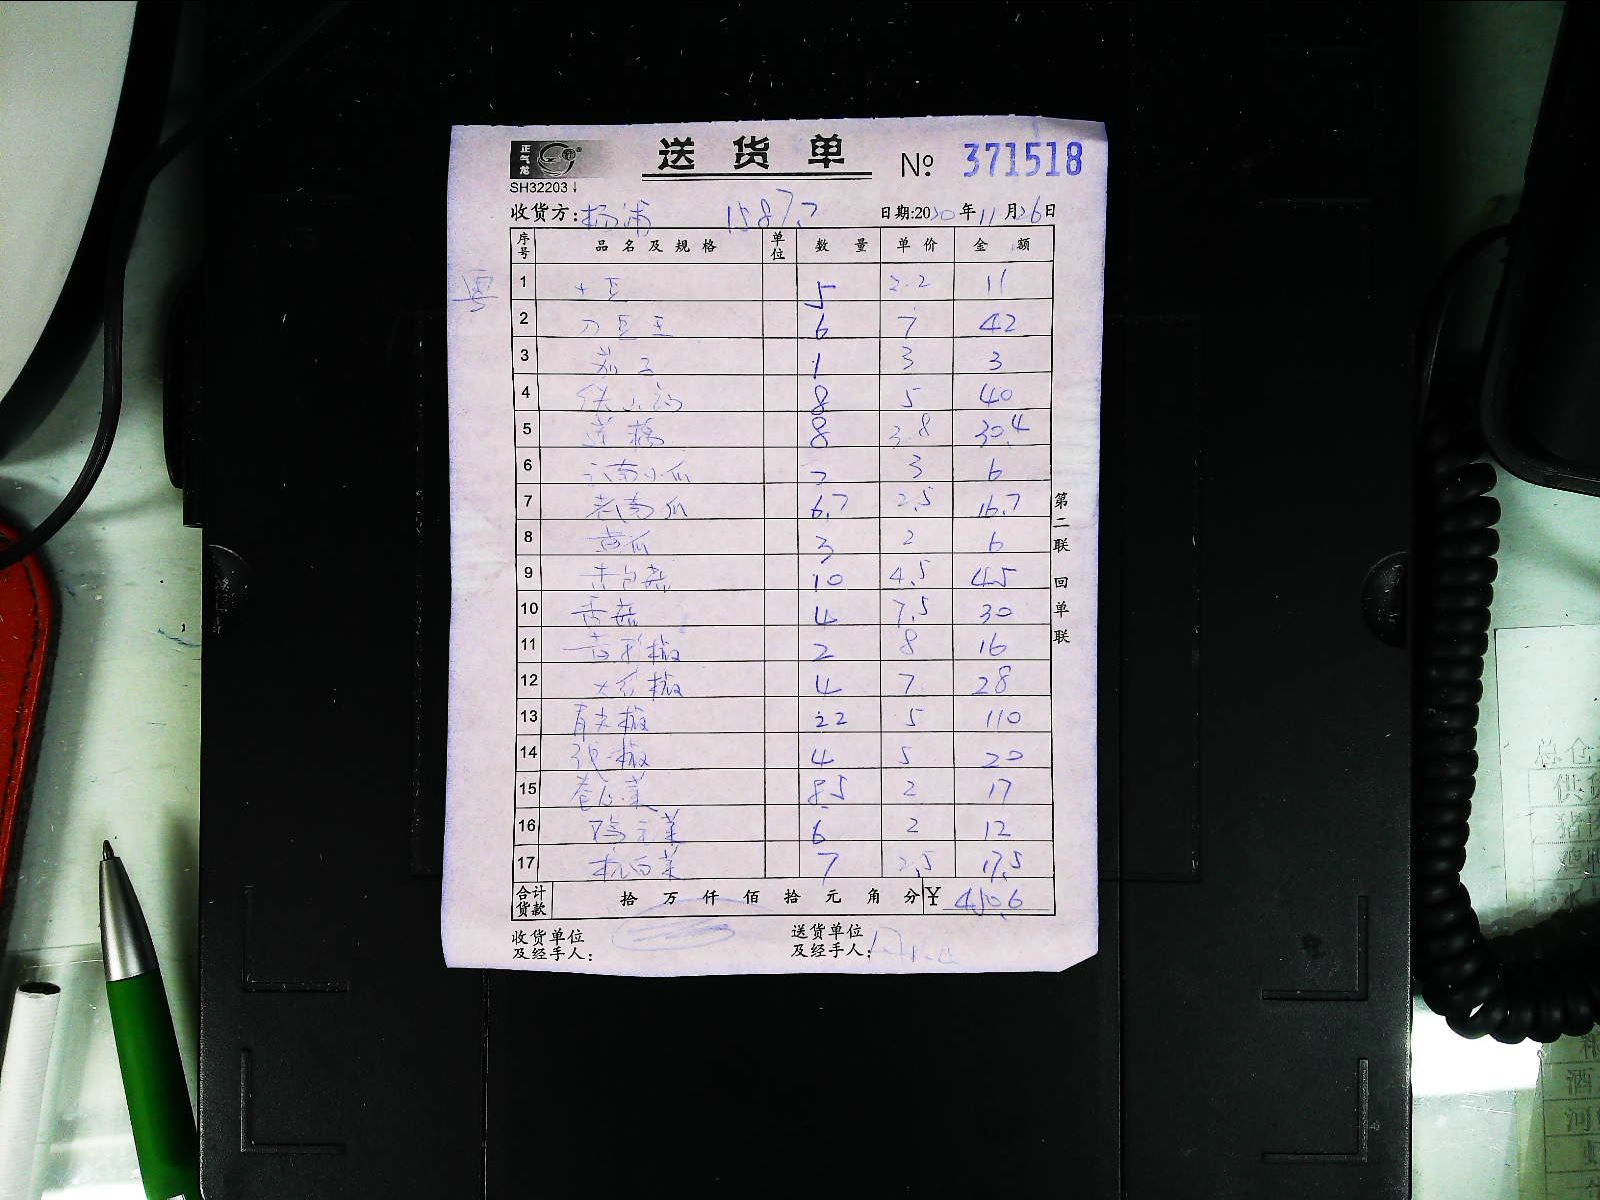 正气龙
SH32203
送货单
№ 371518
收货方: 杨浦 1587.2
日期:2020年11月26日
序号 品名及规格 单位 数量 单价 金额
1 土豆 5 2.2 11
2 刀豆王 6 7 42
3 茄子 1 3 3
4 铁山药 8 5 40
5 莲藕 8 3.8 30.4
6 云南小瓜 2 3 6
7 老南瓜 6.7 2.5 16.7
8 黄瓜 3 2 6
9 杏包菇 10 4.5 45
10 香菇 4 7.5 30
11 8 2 16
12 大红椒 4 7 28
13 青尖椒 22 5 110
14 椒 4 5 20
15 卷心菜 8.5 2 17
16 菜 6 2 12
17 杭白菜 7 2.5 17.5
合计货款 拾 万 仟 佰 拾 元 角 分 ¥ 450.6
收货单位及经手人:
送货单位及经手人:
第二联 回单联